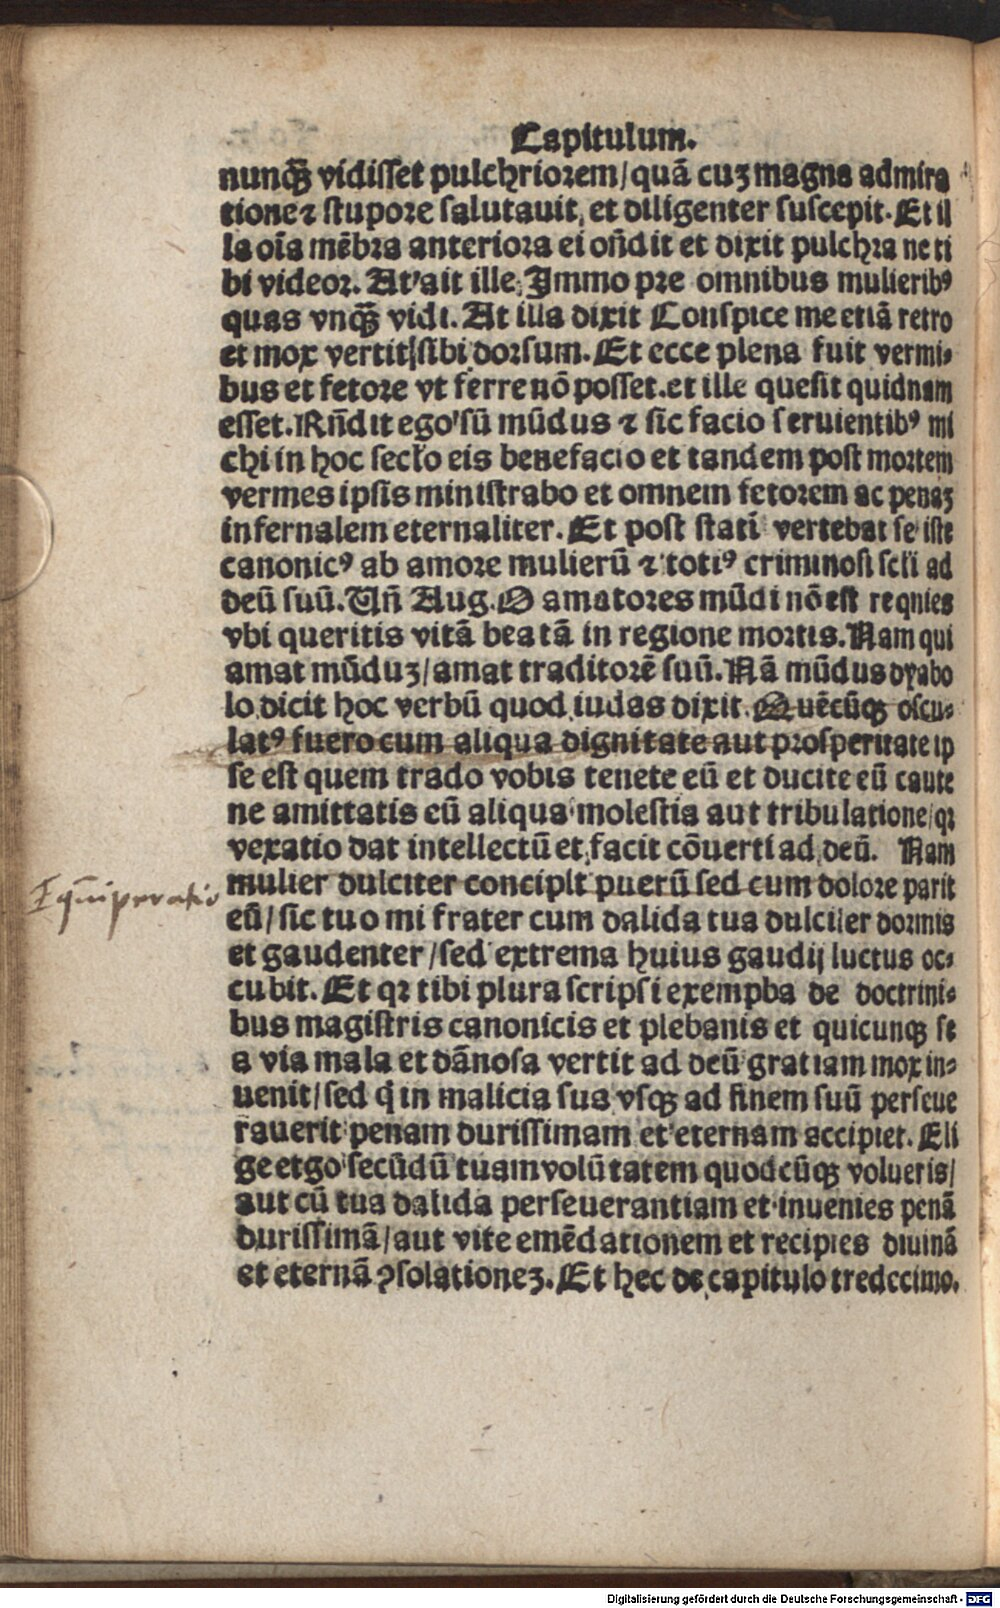 Capitulum.
nunqȝ vidisset pulchriorem/quā cuȝ magna admira
tione ⁊ stupore salutauit, et diligenter suscepit. Et il
la oīa mēbra anteriora ei oñdit et dixit pulchra ne ti
bi videor. At' ait ille. Immo pre omnibus mulieribꝰ
quas vnqȝ vidi. At illa dixit Conspice me etiā retro
et mox vertit sibi dorsum. Et ecce plena fuit vermi⸗
bus et fetore vt ferre nō posset. et ille quesit quidnam
esset. Rñdit ego sū mūdus ⁊ sic facio seruientibꝰ mi
chi in hoc seclo eis benefacio et tandem post mortem
vermes ipsis ministrabo et omnem fetorem ac penaȝ
infernalem eternaliter. Et post stati vertebat se iste
canonicꝰ ab amore mulierū ⁊ totiꝰ criminosi scli ad
deū suū. Uñ Aug. O amatores mūdi nō est requies
vbi queritis vitā beatā in regione mortis. Nam qui
amat mūduȝ/amat traditorē suū. Nā mūdus dyabo
lo dicit hoc verbū quod iudas dixit. Quēcūqȝ oscu⸗
latꝰ fuero cum aliqua dignitate aut prosperitate ip
se est quem trado vobis tenete eū et ducite eū caute
ne amittatis eū aliqua molestia aut tribulatione/qꝛ
vexatio dat intellectū et facit cōuerti ad deū. Nam
Equiperatio
mulier dulciter concipit puerū sed cum dolore parit
eū/sic tu o mi frater cum dalida tua dulciter dormis
et gaudenter/sed extrema huius gaudij luctus oc⸗
cubit. Et qꝛ tibi plura scripsi exempba de doctrini⸗
bus magistris canonicis et plebanis et quicunqȝ se
a via mala et dānosa vertit ad deū gratiam mox in⸗
uenit/sed q̄ in malicia sua vsqȝ ad finem suū perseue
rauerit penam durissimam et eternam accipiet. Eli
ge etgo secūdū tuam volūtatem quodcūqȝ volueris/
aut cū tua dalida perseuerantiam et inuenies penā
durissimā/aut vite emēdationem et recipies diuinā
et eternā ꝯsolationeȝ. Et hec de capitulo tredecimo.
Digitalisierung gefördert durch die Deutsche Forschungsgemeinschaft - DFG